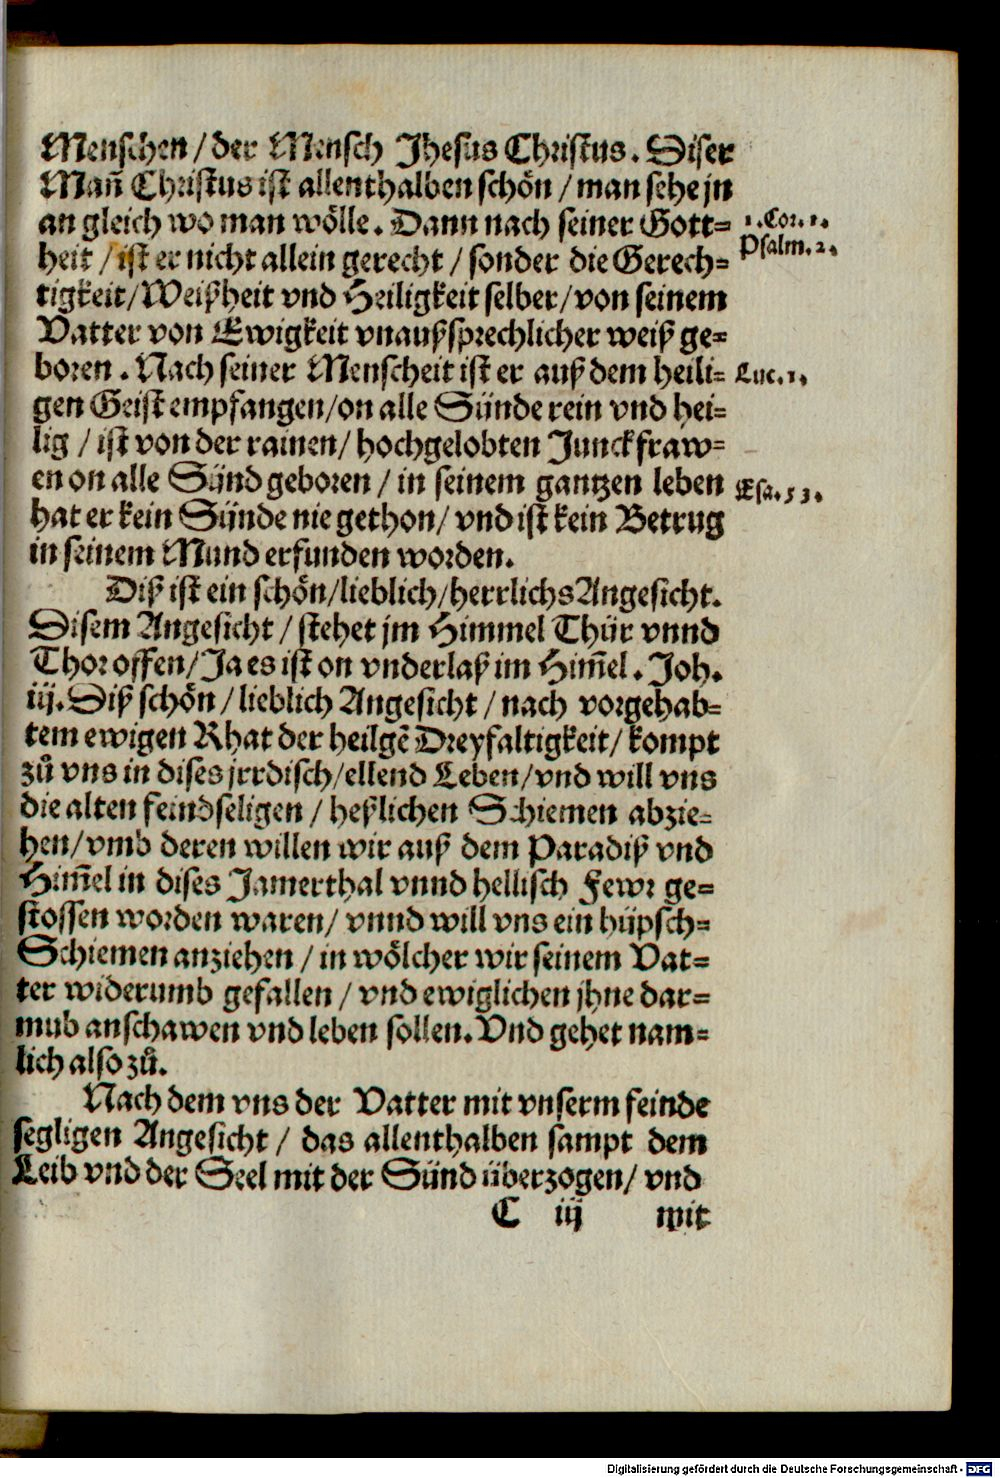 Menschen / der Mensch Jhesus Christus. Diser
Man̄ Christus ist allenthalben schön / man sehe jn
an gleich wo man wölle. Dann nach seiner Gott=
1. Cor. 1.
heit / ist er nicht allein gerecht / sonder die Gerech=
Psalm. 2.
tigkeit / Weißheit vnd Heiligkeit selber / von seinem
Vatter von Ewigkeit vnaußsprechlicher weiß ge=
boren. Nach seiner Menscheit ist er auß dem heili=
Luc. 1.
gen Geist empfangen / on alle Sünde rein vnd hei=
lig / ist von der rainen / hochgelobten Junckfraw=
en on alle Sünd geboren / in seinem gantzen leben
Esa. 53.
hat er kein Sünde nie gethon / vnd ist kein Betrug
in seinem Mund erfunden worden.
Diß ist ein schön / lieblich / herrlichs Angesicht.
Disem Angesicht / stehet jm Himmel Thür vnnd
Thor offen / Ja es ist on vnderlaß im Him̄el. Joh.
iij. Diß schön / lieblich Angesicht / nach vorgehab=
tem ewigen Rhat der heilgē Dreyfaltigkeit / kompt
zů vns in dises jrrdisch / ellend Leben / vnd will vns
die alten feindseligen / heßlichen Schiemen abzie=
hen / vmb deren willen wir auß dem Paradiß vnd
Him̄el in dises Jamerthal vnnd hellisch Fewr ge=
stossen worden waren / vnnd will vns ein hüpsch=
Schiemen anziehen / in wölcher wir seinem Vat=
ter widerumb gefallen / vnd ewiglichen jhne dar=
mub anschawen vnd leben sollen. Vnd gehet nam=
lich also zů.
Nach dem vns der Vatter mit vnserm feinde
segligen Angesicht / das allenthalben sampt dem
Leib vnd der Seel mit der Sünd überzogen / vnd
C iij wit
Digitalisierung gefördert durch die Deutsche Forschungsgemeinschaft - DFG